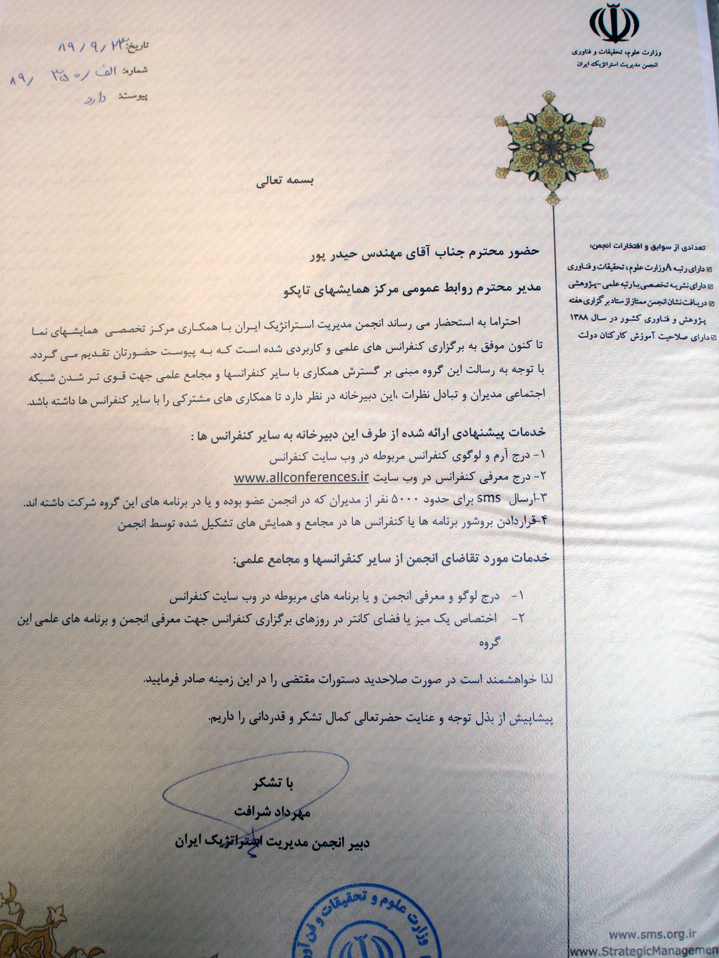 وزارت علوم، تحقیقات و فناوری
انجمن مدیریت استراتژیک ایران
تاریخ: ۸۹/۹/۲۳
شماره: الف/ ۸۹/
پیوست: دارد
بسمه تعالی
حضور محترم جناب آقای مهندس حیدر پور
مدیر محترم روابط عمومی مرکز همایشهای تاپکو
احتراما به استحضار می رساند انجمن مدیریت استراتژیک ایران با همکاری مرکز تخصصی همایشهای نما
تا کنون موفق به برگزاری کنفرانس های علمی و کاربردی شده است که به پیوست حضورتان تقدیم می گردد.
با توجه به رسالت این گروه مبنی بر گسترش همکاری با سایر کنفرانسها و مجامع علمی جهت قوی تر شدن شبکه
اجتماعی مدیران و تبادل نظرات ،این دبیرخانه در نظر دارد تا همکاری های مشترکی را با سایر کنفرانس ها داشته باشد.
خدمات پیشنهادی ارائه شده از طرف این دبیرخانه به سایر کنفرانس ها :
۱- درج آرم و لوگوی کنفرانس مربوطه در وب سایت کنفرانس
۲- درج معرفی کنفرانس در وب سایت www.allconferences.ir
۳-ارسال sms برای حدود ۵۰۰۰ نفر از مدیران که در انجمن عضو بوده و یا در برنامه های این گروه شرکت داشته اند.
۴-قراردادن بروشور برنامه ها یا کنفرانس ها در مجامع و همایش های تشکیل شده توسط انجمن
خدمات مورد تقاضای انجمن از سایر کنفرانسها و مجامع علمی:
۱- درج لوگو و معرفی انجمن و یا برنامه های مربوطه در وب سایت کنفرانس
۲- اختصاص یک میز یا فضای کانتر در روزهای برگزاری کنفرانس جهت معرفی انجمن و برنامه های علمی این
گروه
لذا خواهشمند است در صورت صلاحدید دستورات مقتضی را در این زمینه صادر فرمایید.
پیشاپیش از بذل توجه و عنایت حضرتعالی کمال تشکر و قدردانی را داریم.
با تشکر
مهرداد شرافت
دبیر انجمن مدیریت استراتژیک ایران
تعدادی از سوابق و افتخارات انجمن:
دارای رتبه A وزارت علوم، تحقیقات و فناوری
دارای نشریه تخصصی با رتبه علمی - پژوهشی
دریافت نشان انجمن ممتاز از ستاد برگزاری هفته
پژوهش و فناوری کشور در سال ۱۳۸۸
دارای صلاحیت آموزش کارکنان دولت
وزارت علوم و تحقیقات و فن آور
www.sms.org.ir
www.StrategicManagemen